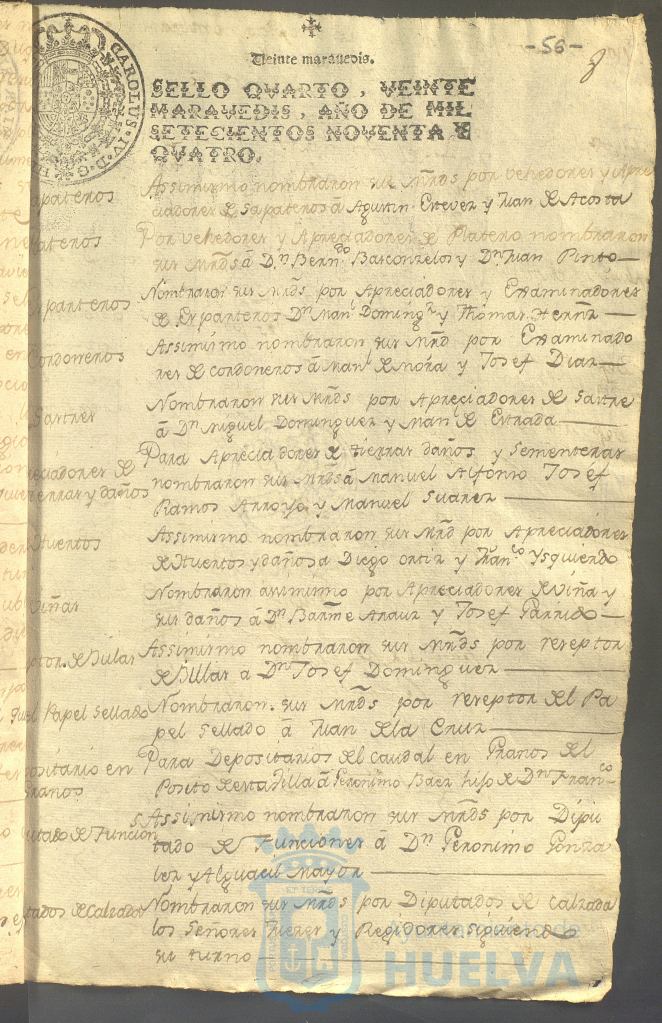 -56-
Veinte maravedis.
SELLO QVARTO, VEINTE
MARAVEDIS, AÑO DE MIL
SETECIENTOS NOVENTA Y
QVATRO.
CAROLUS IV D G
Assimismo nombraron sus Mrds por vehedores y Apre
ciadores de Sapateros á Agustin Estevez y Juan de Acosta
Por vehedores y Apreciadores de Platero nombraron
sus Mrds á Dn Berndo Basconzelos y Dn Juan Pinto
Nombraron sus Mrds por Apreciadores y Examinadores
de Esparteros Dn Manl Domingz y Thomas Hernz
Assimismo nombraron sus Mrd por Examinado
res de cordoneros á Manl de Mora y Josef Diaz
Nombraron sus Mrds por Apreciadores de Sastre
á Dn Miguel Dominguez y Man de Estrada
Para Apreciadores de tierras daños y sementeras
nombraron sus Mrds á Manuel Alfonso Josef
Ramos Arroyo y Manuel Suarez
Assimismo nombraron sus Mrd por Apreciadores
de Huertos y daños a Diego ortiz y Franco Ysquierdo
Nombraron assimismo por Apreciadores de viña y
sus daños á Dn Barme Arauz y Josef Garrido
Assimismo nombraron sus Mrds por reseptor
de Bullas a Dn Josef Dominguez
Nombraron sus Mrds por reseptor del Pa
pel Sellado á Juan de la Cruz
Para Depositarios del caudal en Granos del
Posito de esta villa á Geronimo Baez hijo de Dn Franco
Assimismo nombraron sus Mrds por Dipu
tado de Funciones á Dn Geronimo Gonza
lez y Alguacil Mayor
Nombraron sus Mrds por Diputados de calzada
los Señores Juezes y Regidores siguiendo
su turno
apateros
lateros
Esparteros
Cordoneros
Sastres
eciadores de
tierras y daños
Huertos
viñas
ptor de Bulas
del Papel Sellado
positario en
Granos
utado de Funcion
utados de Calzadas
Ayuntamiento de
HUELVA